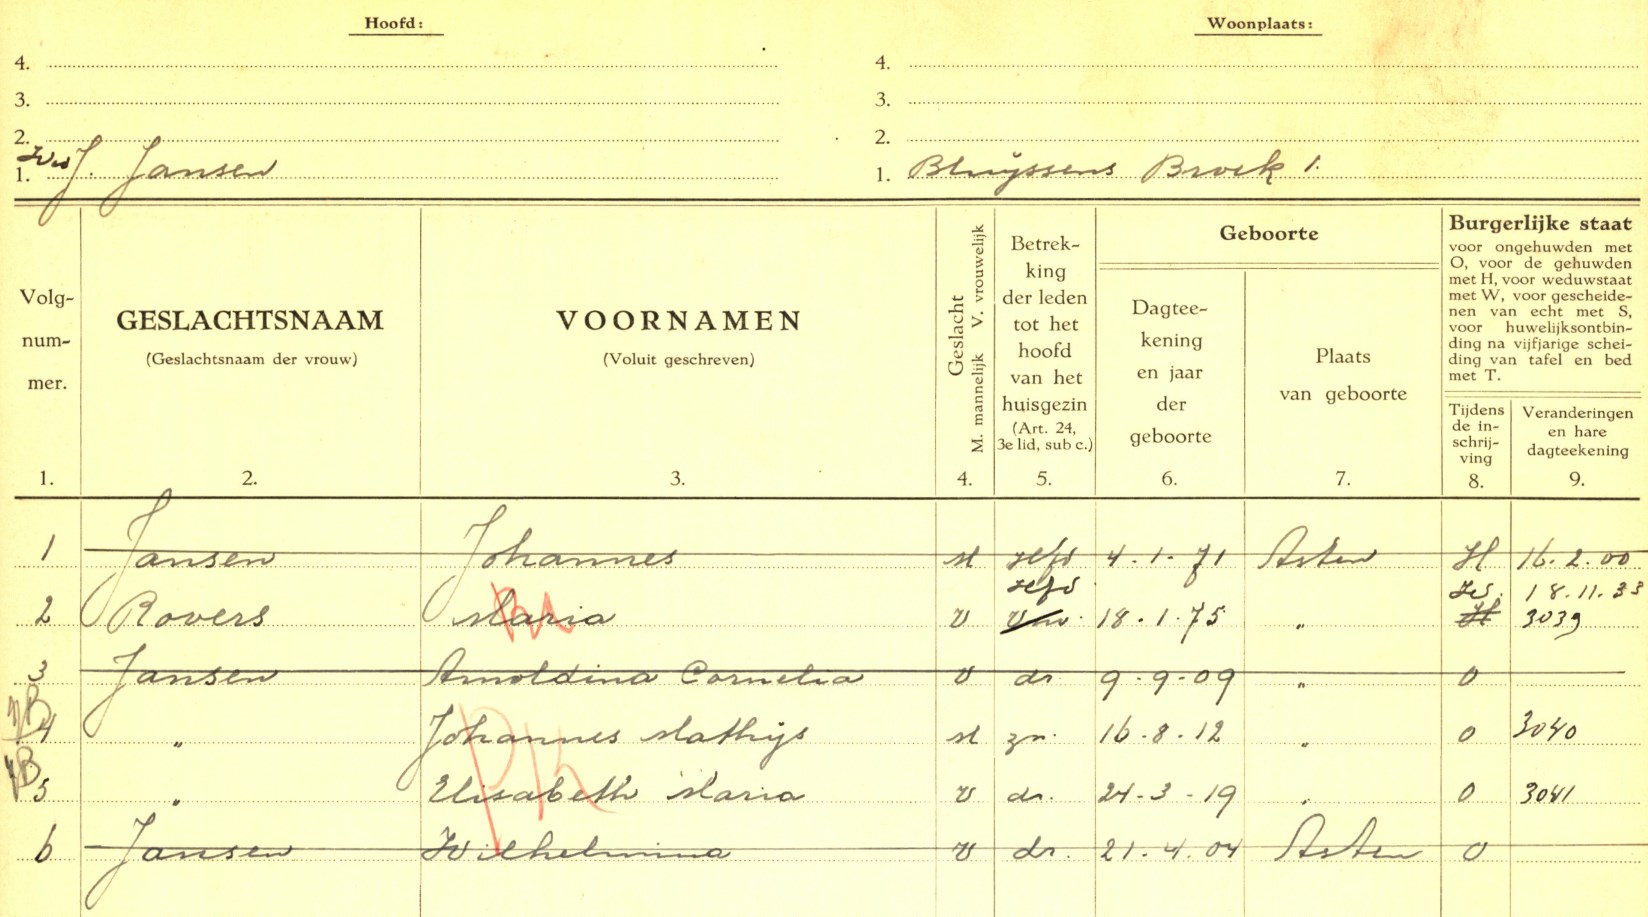 Hoofd: Woonplaats:
4. 4.
3. 3.
2. 2.
Wed
1. J. Jansen 1. Bluyssens Broek 1.
Volg-
num-
mer.
1.
GESLACHTSNAAM
(Geslachtsnaam der vrouw)
2.
VOORNAMEN
(Voluit geschreven)
3.
Geslacht
M. mannelijk V. vrouwelijk
4.
Betrek-
king
der leden
tot het
hoofd
van het
huisgezin
(Art. 24,
3e lid, sub c.)
5.
Geboorte
Dagtee-
kening
en jaar
der
geboorte
6.
Plaats
van geboorte
7.
Burgerlijke staat
voor ongehuwden met
O, voor de gehuwden
met H, voor weduwstaat
met W, voor gescheide-
nen van echt met S,
voor huwelijksontbin-
ding na vijfjarige schei-
ding van tafel en bed
met T.
Tijdens
de in-
schrij-
ving
8.
Veranderingen
en hare
dagteekening
9.
1 Jansen Johannes M hfd 4-1-71 Asten H 16.2.00
hfd Wed. 18.11.33
2 Rovers Maria v vrw. 18.1.75 " H 3039
3 Jansen Arnoldina Cornelia v dr 9-9-09 " O
4 " Johannes Mathijs M zn. 16-8-12 " O 3040
5 " Elisabeth Maria v dr. 24-3-19 " O 3041
6 Jansen Wilhelmina v dr. 21.4.04 Asten O
PK